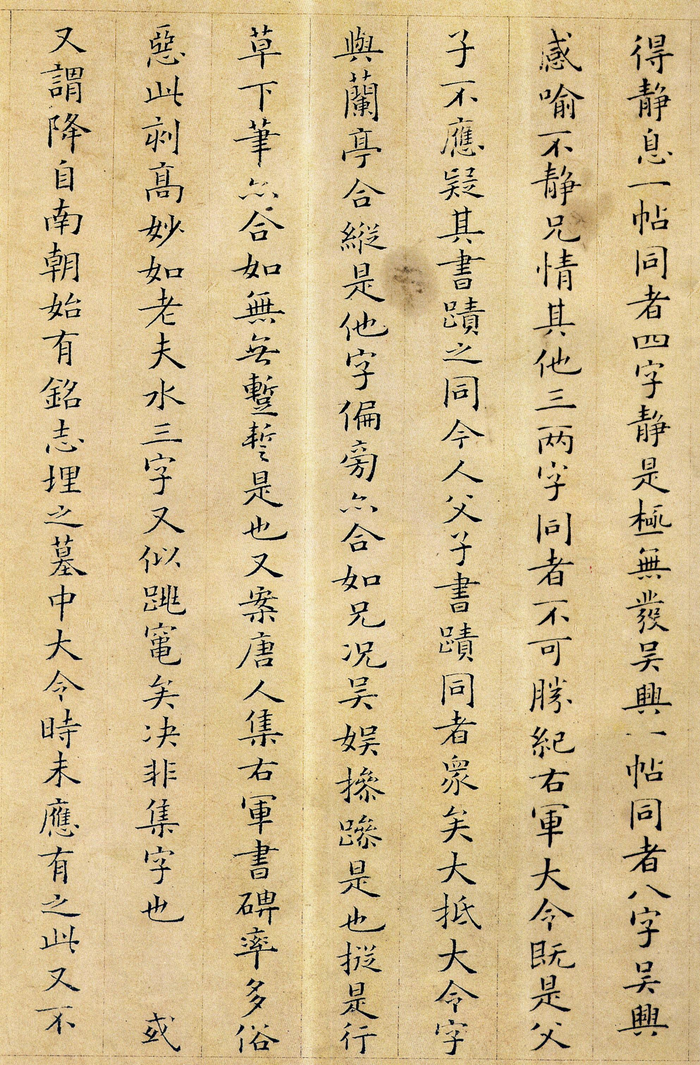 得静息一帖同者四字静是極無發吴興一帖同者八字吴興
感喻不静兄情其他三两字同者不可勝紀右軍大令既是父
子不應疑其書蹟之同今人父子書蹟同者衆矣大抵大令字
與蘭亭合縱是他字偏旁亦合如兄况吴娱摻蹨是也挻是行
草下筆亦合如無無蹔蹔是也又案唐人集右軍書碑率多俗
惡此剡高妙如老夫水三字又似跳竃矣决非集字也 或
又謂降自南朝始有銘志埋之墓中大令時未應有之此又不